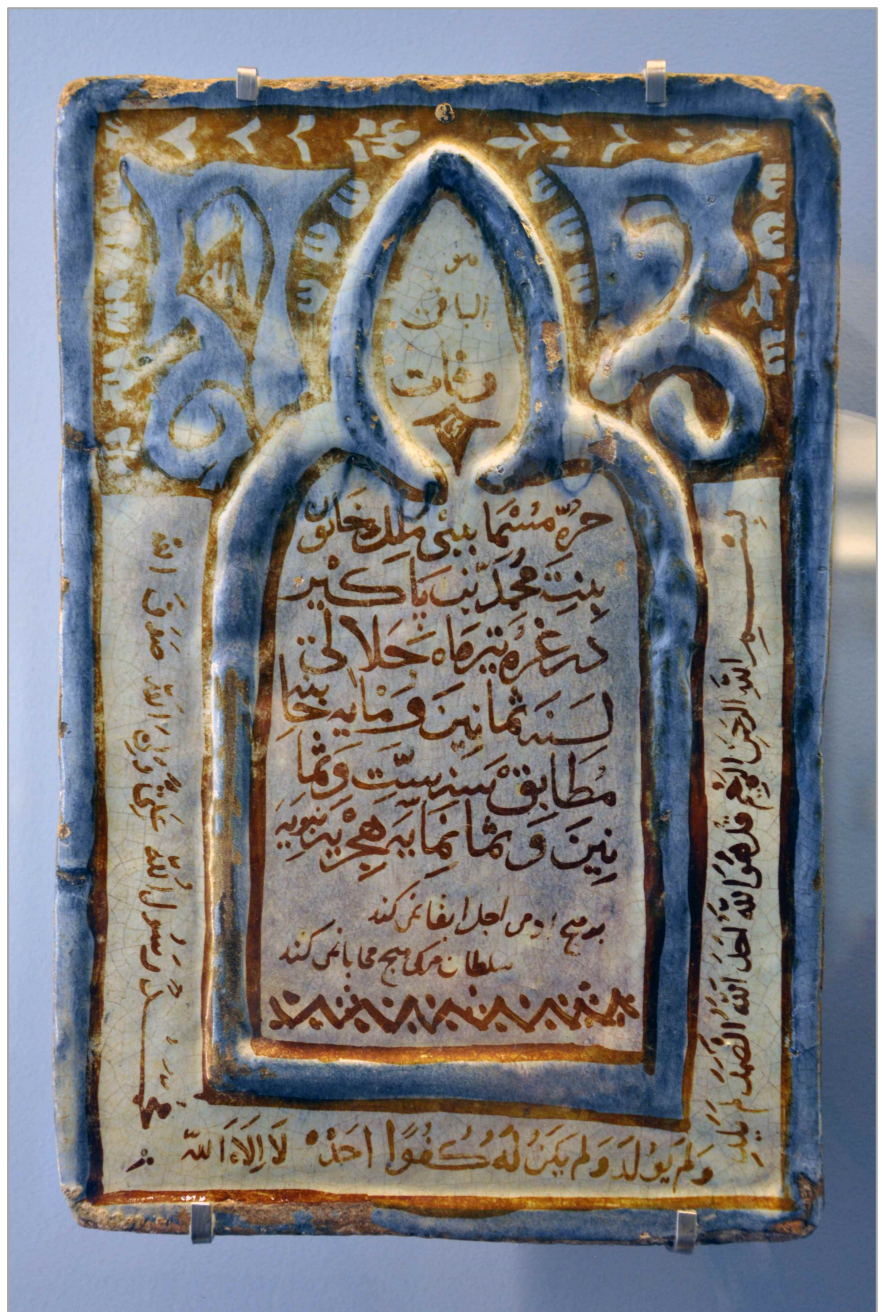 هو
الباقی
وفات
حرّه مسما بیبی ملک خاتون
بنت محمد زیت پاکیر
در غره تیرماه جلالی
لسنه ثمانین و مایه خانی
مطابق سنه ستّ و ثما
نین و ثمانمایّه هجریه نبویه
بر هیچ ادمی اجل ابقا نمی کند
سلطان مرک هیچ محابا نمی کند
بِسْمِ الله الرحمن الرحیم قل هو الله احد الله الصمد لم یلد
ولم یولد ولم یکن له کفوًا احد لا اله الا الله
محمد رسول الله علی ولی الله صدق الله